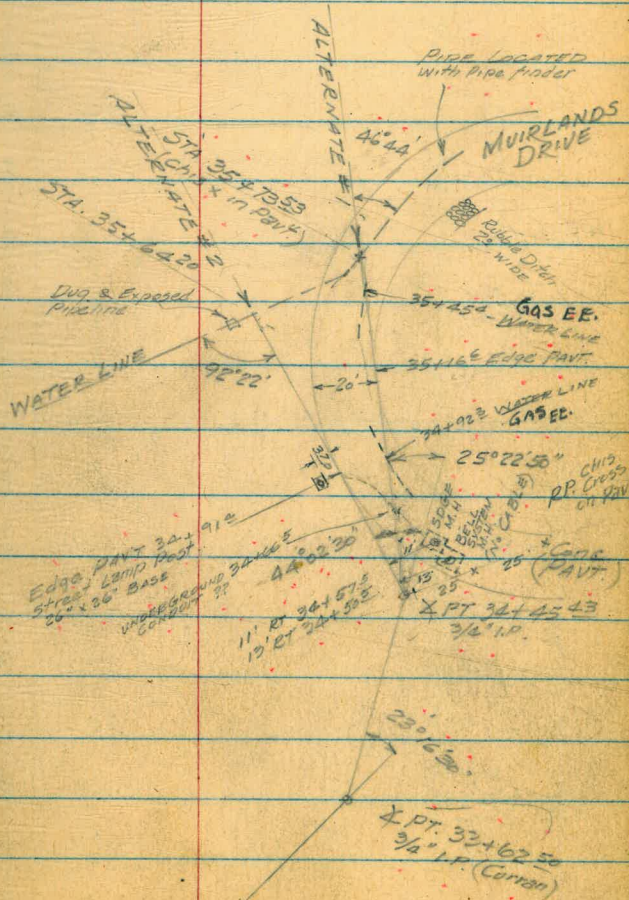 ALTERNATE #1
PIPE LOCATED
with Pipe finder
MUIRLANDS
DRIVE
46°44'
STA 35+73.53
(Chis X in Pav't.)
ALTERNATE #2
STA. 35+64.20
Rubble Ditch
2.0 WIDE
Dug & Exposed
Pipeline
35+45.4 - WATER LINE
GAS EE.
WATER LINE
92°22'
35+16.6 Edge PAVT.
20'
34+92.3 WATER LINE
GAS EE.
25°22'50"
37.9
CHIS
P.P. Cross
on Pav
SDG&E
M.H.
BELL
SYSTEM
M.H.
(No CABLE)
Edge PAVT 34+91.2
Street Lamp Post
26" x 26" BASE
UNDERGROUND 34+66.5
CONDUIT ??
44°02'30"
11' RT 34+57.5
13' RT 34+50.5
11
13
25
25'
(Conc
PAVT.)
∡ PT 34+43.43
3/4" I.P.
23°16'30"
∡ PT. 33+62.50
3/4" I.P. (Curran)